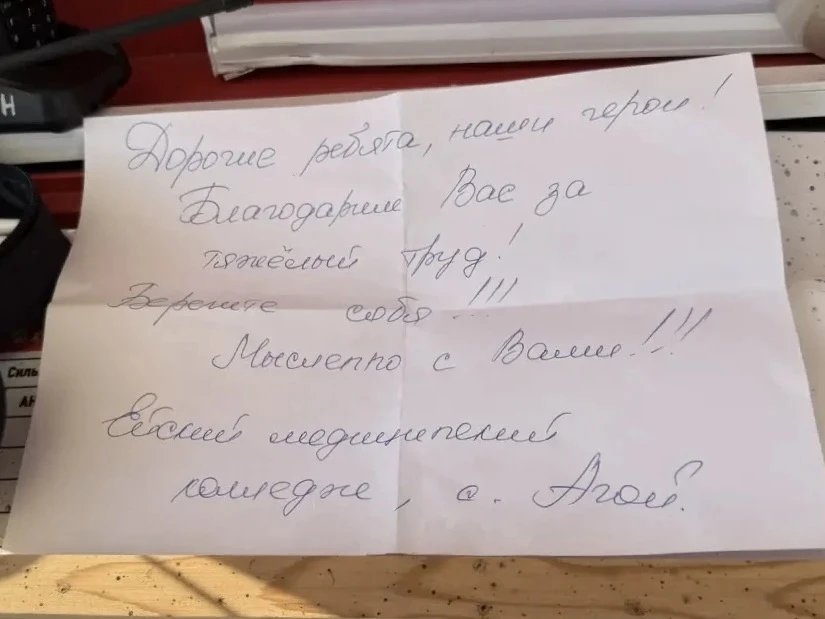 Дорогие ребята, наши герои!
Благодарим Вас за
тяжёлый труд!
Берегите себя!!!
Мысленно с Вами!!!
Ейский медицинский
колледж, с. Агой.
Н
Силь
АН